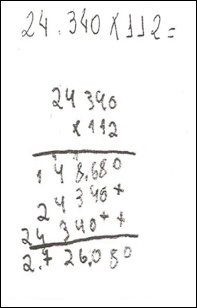 24.340 x 112=
24 340
x 112
1 48.680
24 340+
24 340++
2.726.080